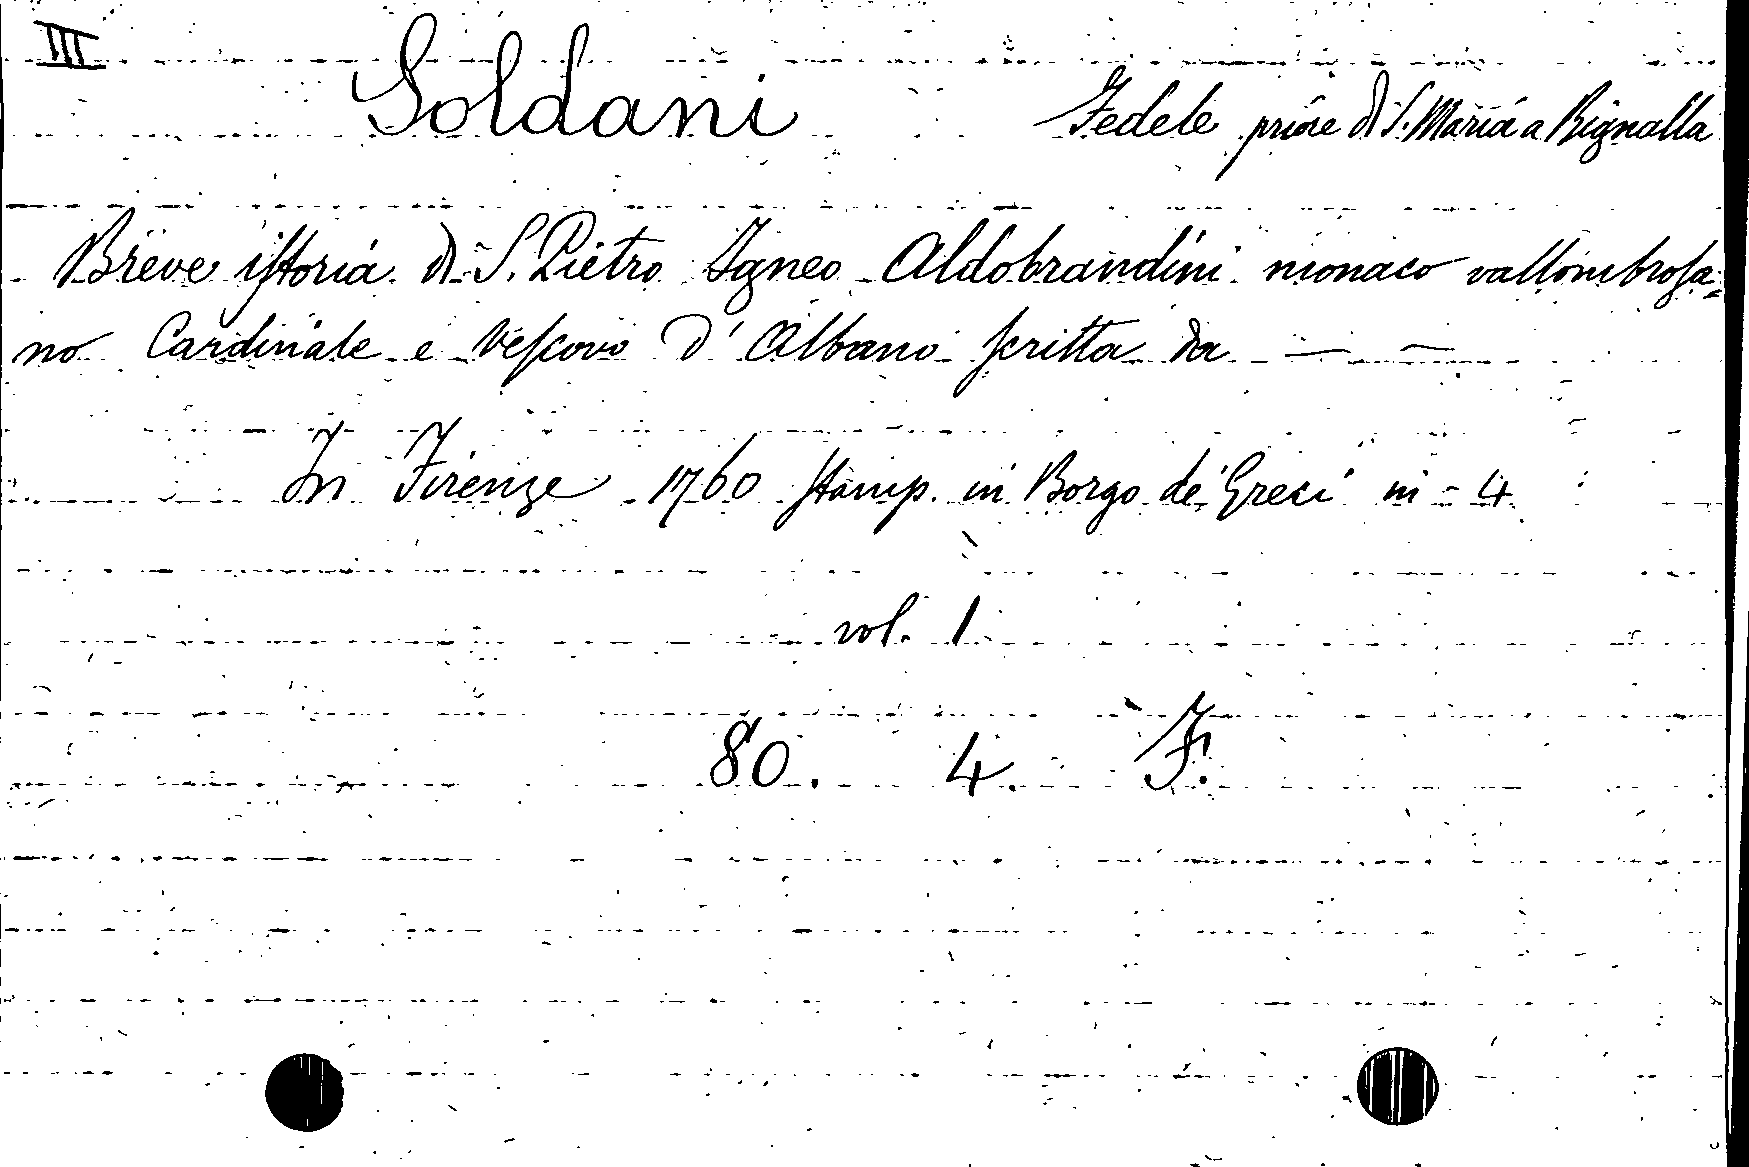 III
Soldani Fedele priore di S. Maria a Rignalla
Breve istoria di S. Pietro Igneo Aldobrandini monaco vallombrosa=
no Cardinale e Vescovo d'Albano scritta da — —
In Firenze 1760 stamp. in Borgo de' Greci in - 4
vol. 1
80. 4. F.